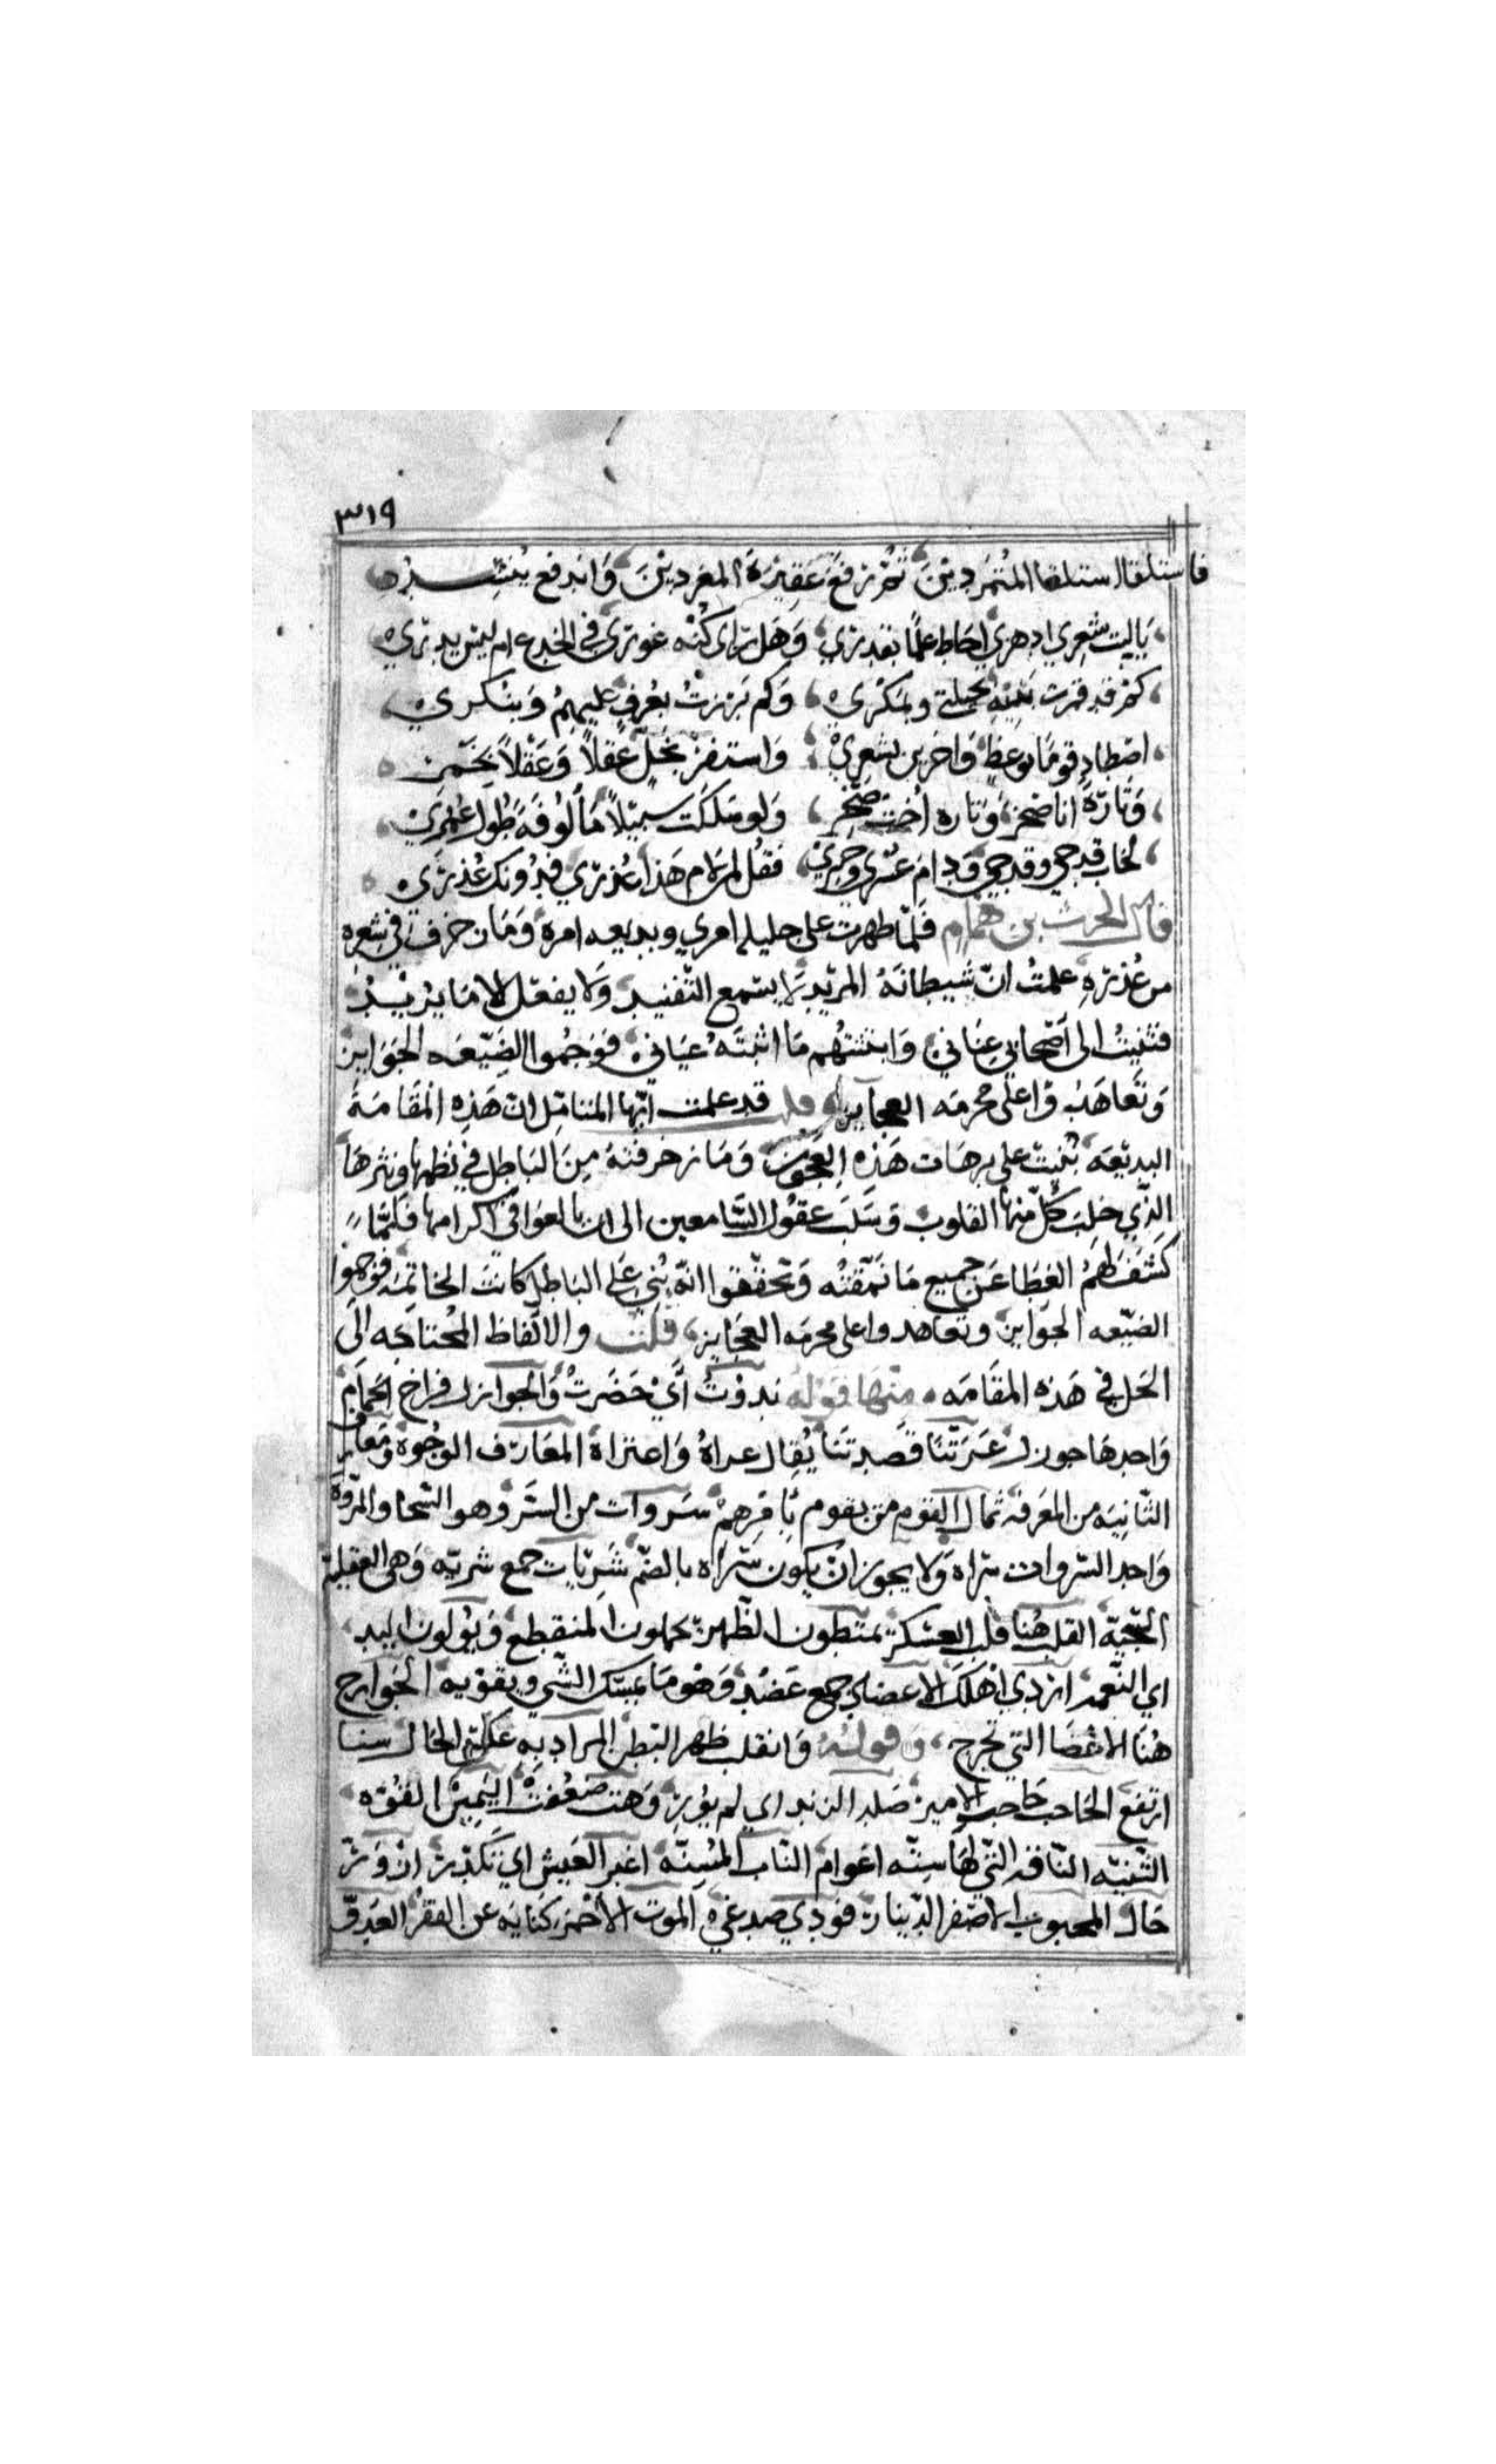 ٣١٩
فاستلقا استلقا المتمردين ثم رفع عقيرة المغردين واندفع ينشد
ياليت شعري ادهري احاط علما بقدري وهل درى كنه غوري في الخدع ام ليس يدري
كم قد قمرت بنيه بحيلتي وبمكري وكم برزت بعرف عليهم وبنكري
اصطاد قوما بوعظ واخرين بشعري واستفز بخل عقلا وعقلا بخمر
وتارة انا صخر وتاره اخت صخر ولو سلكت سبيلا مألوفة طول عمري
لخاب قدحي وقدحي ودام عسري وخسري فقل لمن لام هذا عذري فدونك عذري
قال الحرث بن همام فلما ظهرت على جلية امري وبديعه امره وما زخرف في شعره
من عذره علمت ان شيطانه المريد لا يسمع التفنيد ولا يفعل الا ما يريد
فثنيت الى اصحابي عناني وابثثتهم ما اثبته عياني فوجموا لضيعه الجوايز
وتعاهدوا على محرمه العجايز قلت قد علمت ايها المتامل ان هذه المقامة
البديعه بنيت على ترهات هذه العجوز وما زخرفته من الباطل في نظمها ونثرها
الذي خلب كل منها القلوب وسلب عقول السامعين الى ان بالعوا في اكرامها فلما
كشف لهم الغطا عن جميع ما نمقته وتحققوا انه بني على الباطل كانت الخاتمه فوجموا
لضيعه الجوايز وتعاهدوا على محرمه العجايز قلت والالفاظ المحتاجه الى
الحل في هذه المقامه منها قوله ندوت أي حضرت والجوازل فراخ الحمام
واحدها جوزل عرتنا قصدتنا يقال عراه واعتراه المعارف الوجوه ومعارف
الثانيه من المعرفه ثمال القوم من يقوم بامرهم سروات من السرو وهو السخا والمروة
واحد السروات سراه ولا يجوز ان يكون سراه بالضم سريات جمع سريه وهي العقيله
السجية القلب هنا قلب العسكر يمتطون الظهر يحملون المنقطع ويولون اليد
اي النعمة اردي اهلك الاعضاد جمع عضد وهو ما يمسك الشي ويقويه الجوارح
هنا الاعضا التي تجرح وقوله وانقلب ظهر البطن المراد به عكس الحال سنا
ارتفع الحاجب حاجب الامير صلد الزند اي لم يور وهت ضعفت اليمين القوه
الثنيه الناقه التي لها سته اعوام الناب المسنه اغبر العيش اي تكدر ازور
حال المحبوب الاصفر الدينار فودي صدغي الموت الاحمر كنايه عن الفقر العدو